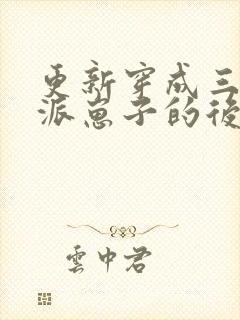 更新穿成三
派崽子的後
雲中君